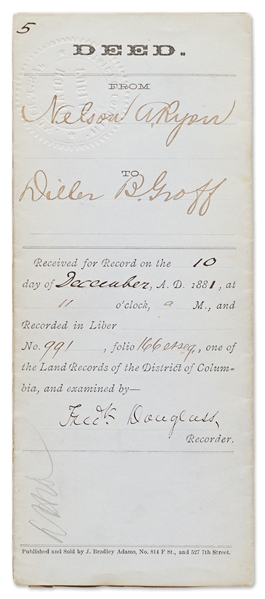 5
DEED.
FROM
Nelson A Ryon
TO
Diller B. Groff
Received for Record on the 10
day of December, A. D. 1881, at
11 o'clock, a M., and
Recorded in Liber
No. 991, folio 166 et seq, one of
the Land Records of the District of Colum-
bia, and examined by—
Fredk Douglass,
Recorder.
Published and Sold by J. Bradley Adams, No. 814 F St., and 527 7th Street.